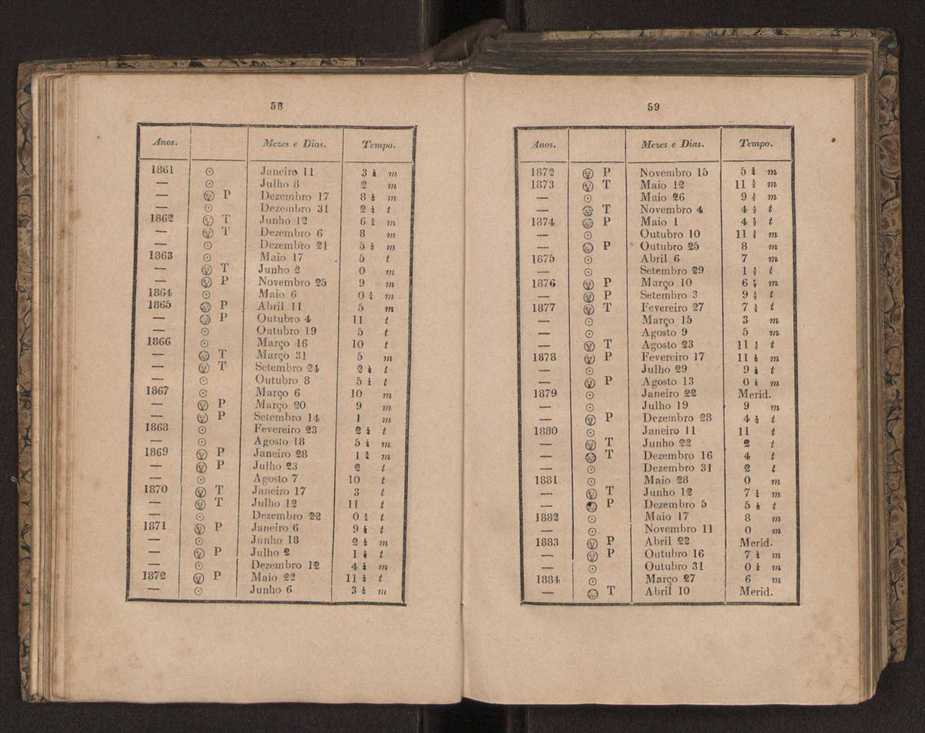 58
Anos. Mezes e Dias. Tempo.
1861 ☉ Janeiro 11 3 m
— ☉ Julho 8 2 m
— P Dezembro 17 8 m
— ☉ Dezembro 31 2 t
1862 T Junho 12 6 m
— T Dezembro 6 8 m
— ☉ Dezembro 21 5 m
1863 ☉ Maio 17 5 t
— T Junho 2 0 m
— P Novembro 25 9 m
1864 ☉ Maio 6 0 m
1865 P Abril 11 5 m
— P Outubro 4 11 t
— ☉ Outubro 19 5 t
1866 ☉ Março 16 10 t
— T Março 31 5 m
— T Setembro 24 2 t
— ☉ Outubro 8 5 t
1867 ☉ Março 6 10 m
— P Março 20 9 m
— P Setembro 14 1 m
1868 ☉ Fevereiro 23 2 t
— ☉ Agosto 18 5 m
1869 P Janeiro 28 1 m
— P Julho 23 2 t
— ☉ Agosto 7 10 t
1870 T Janeiro 17 3 t
— T Julho 12 11 t
— ☉ Dezembro 22 0 t
1871 P Janeiro 6 9 t
— ☉ Junho 18 2 m
— P Julho 2 1 t
— ☉ Dezembro 12 4 m
1872 P Maio 22 11 t
— ☉ Junho 6 3 m
59
Anos. Mezes e Dias. Tempo.
1872 P Novembro 15 5 m
1873 T Maio 12 11 m
— ☉ Maio 26 9 m
— T Novembro 4 4 t
1874 P Maio 1 4 t
— ☉ Outubro 10 11 m
— P Outubro 25 8 m
1875 ☉ Abril 6 7 m
— ☉ Setembro 29 1 t
1876 P Março 10 6 m
— P Setembro 3 9 t
1877 T Fevereiro 27 7 t
— ☉ Março 15 3 m
— ☉ Agosto 9 5 m
— T Agosto 23 11 t
1878 P Fevereiro 17 11 m
— ☉ Julho 29 9 t
— P Agosto 13 0 m
1879 ☉ Janeiro 22 Merid.
— ☉ Julho 19 9 m
— P Dezembro 28 4 t
1880 ☉ Janeiro 11 11 t
— T Junho 22 2 t
— T Dezembro 16 4 t
— ☉ Dezembro 31 2 t
1881 ☉ Maio 28 0 m
— T Junho 12 7 m
— P Dezembro 5 5 t
1882 ☉ Maio 17 8 m
— ☉ Novembro 11 0 m
1883 P Abril 22 Merid.
— P Outubro 16 7 m
— ☉ Outubro 31 0 m
1884 ☉ Março 27 6 m
— T Abril 10 Merid.